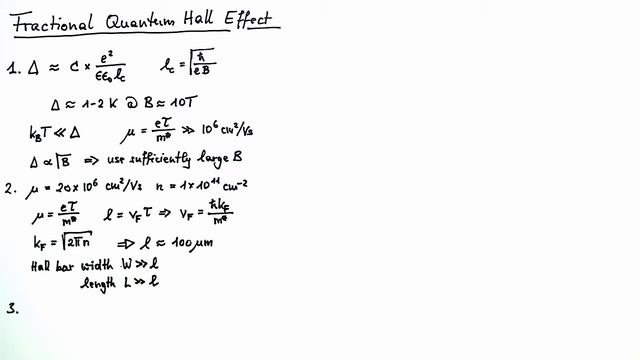 Fractional Quantum Hall Effect
1. Δ ≈ C × e²/(εε₀ l_c)   l_c = √(ħ/eB)
Δ ≈ 1-2 K @ B ≈ 10T
k_BT ≪ Δ   μ = eτ/m* ≫ 10⁶ cm²/Vs
Δ ∝ √B ⇒ use sufficiently large B
2. μ = 20×10⁶ cm²/Vs   n = 1×10¹¹ cm⁻²
μ = eτ/m*   l = v_F τ ⇒ v_F = ħk_F/m*
k_F = √(2πn)   ⇒ l ≈ 100 μm
Hall bar width W ≫ l
length L ≫ l
3.